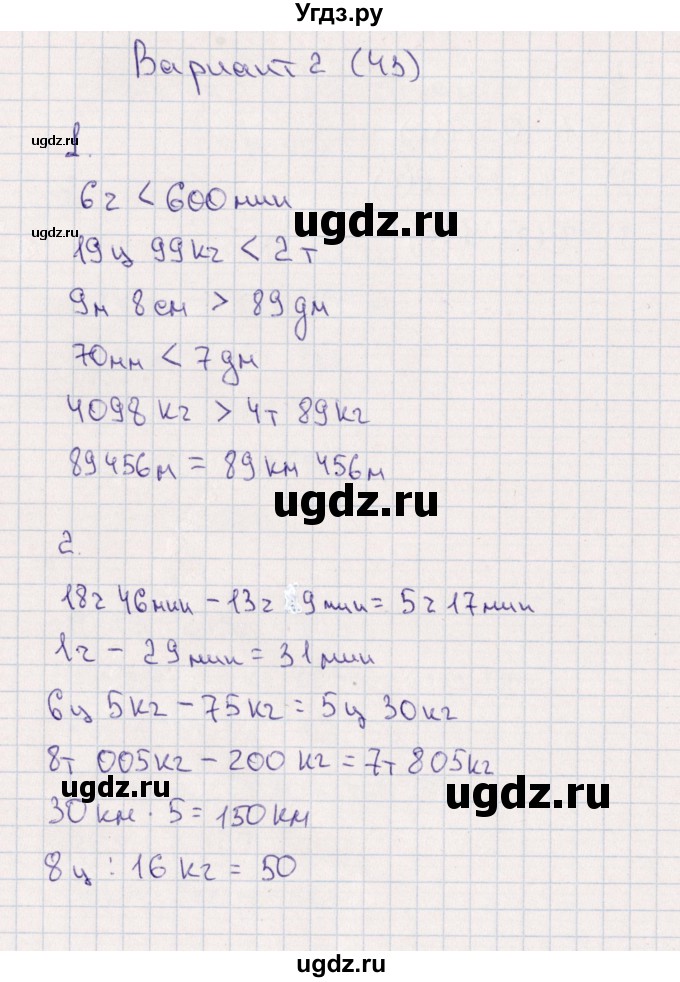 Угдз.ру
Вариант 2 (43)
ugdz.ru
1.
6 ч < 600 мин
ugdz.ru
ugdz.ru
19 ц 99 кг < 2 т
9 м 8 см > 89 дм
70 мм < 7 дм
4098 кг > 4 т 89 кг
89456 м = 89 км 456 м
ugdz.ru
2.
18 ч 46 мин - 13 ч 9 мин = 5 ч 17 мин
1 ч - 29 мин = 31 мин
6 ц 5 кг - 75 кг = 5 ц 30 кг
8 т 005 кг - 200 кг = 7 т 805 кг
ugdz.ru
ugdz.ru
30 км · 5 = 150 км
8 ц : 16 кг = 50
ugdz.ru